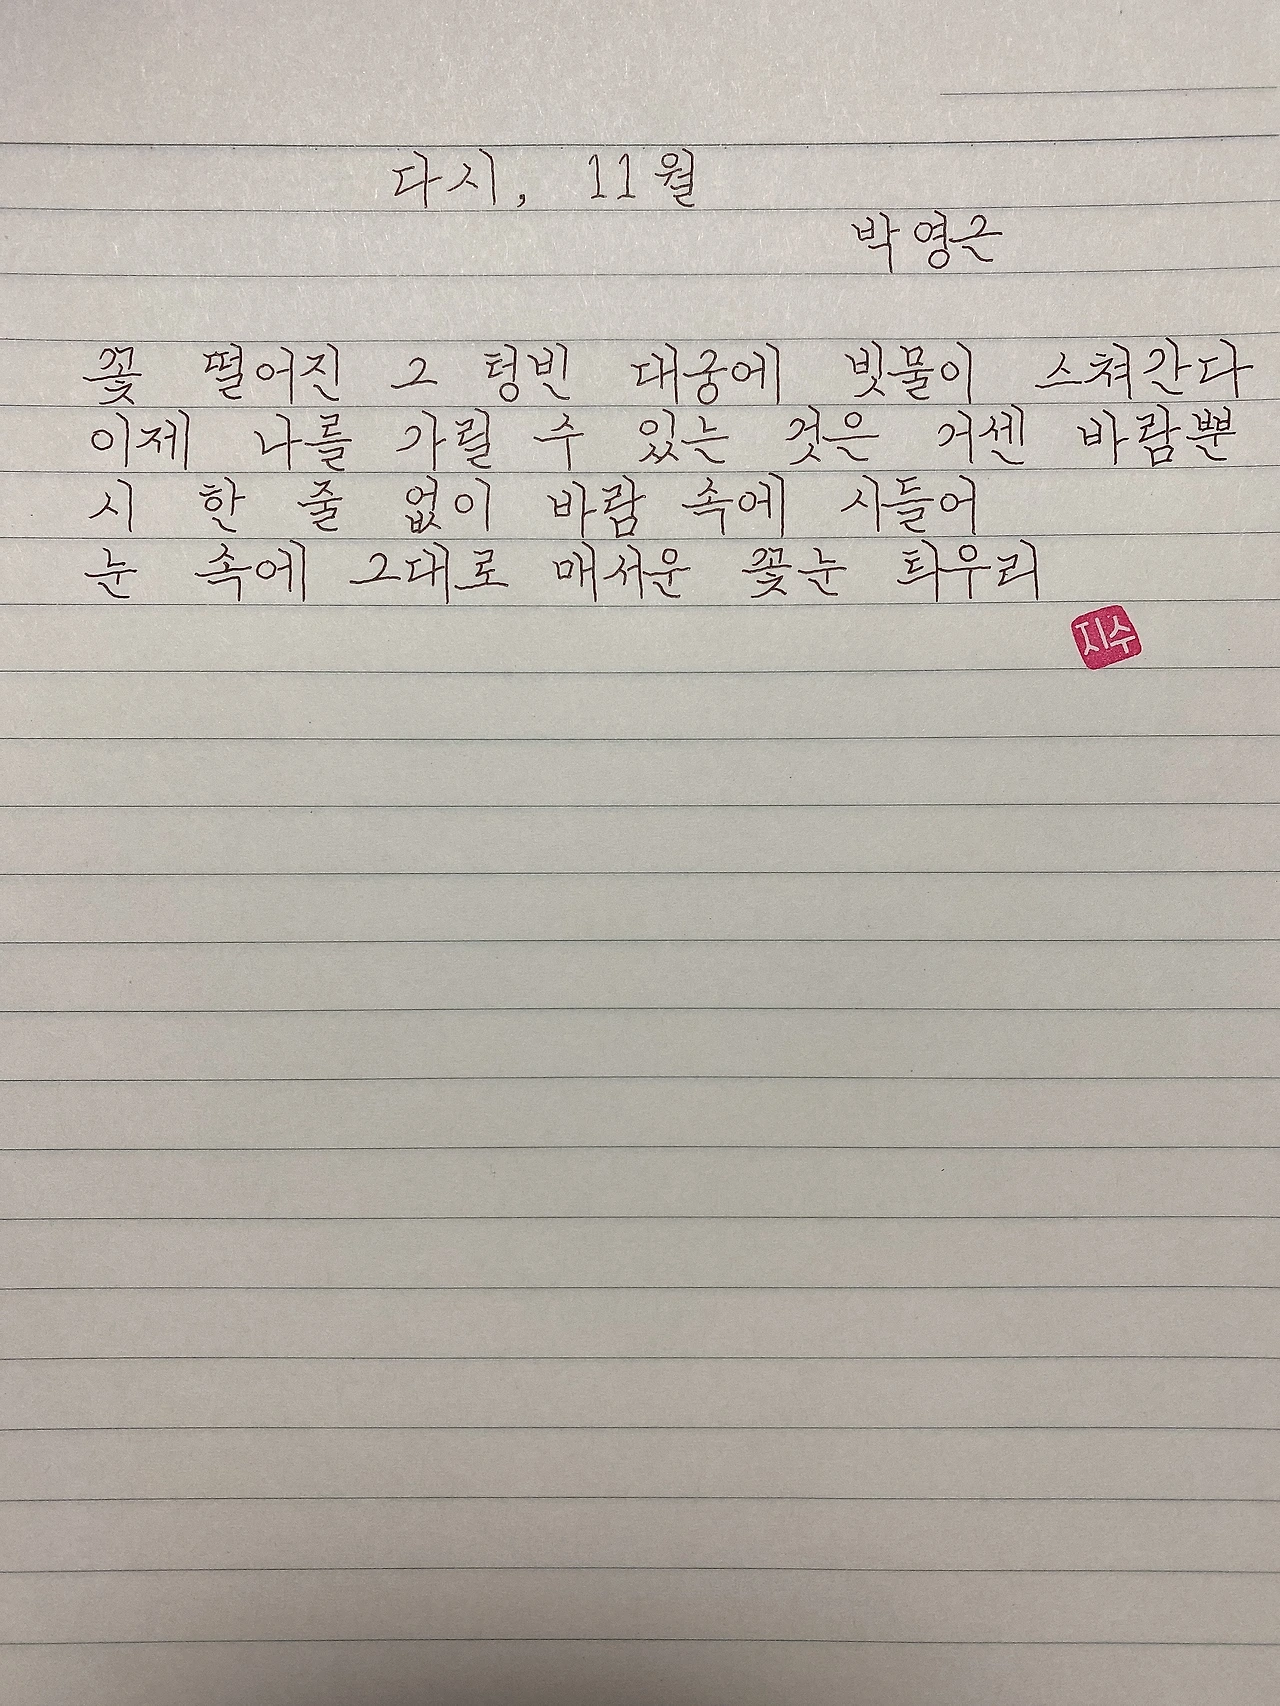 다시, 11월
박영근
꽃 떨어진 그 텅빈 대궁에 빗물이 스쳐간다
이제 나를 가릴 수 있는 것은 거센 바람뿐
시 한 줄 없이 바람 속에 시들어
눈 속에 그대로 매서운 꽃눈 틔우리
지수